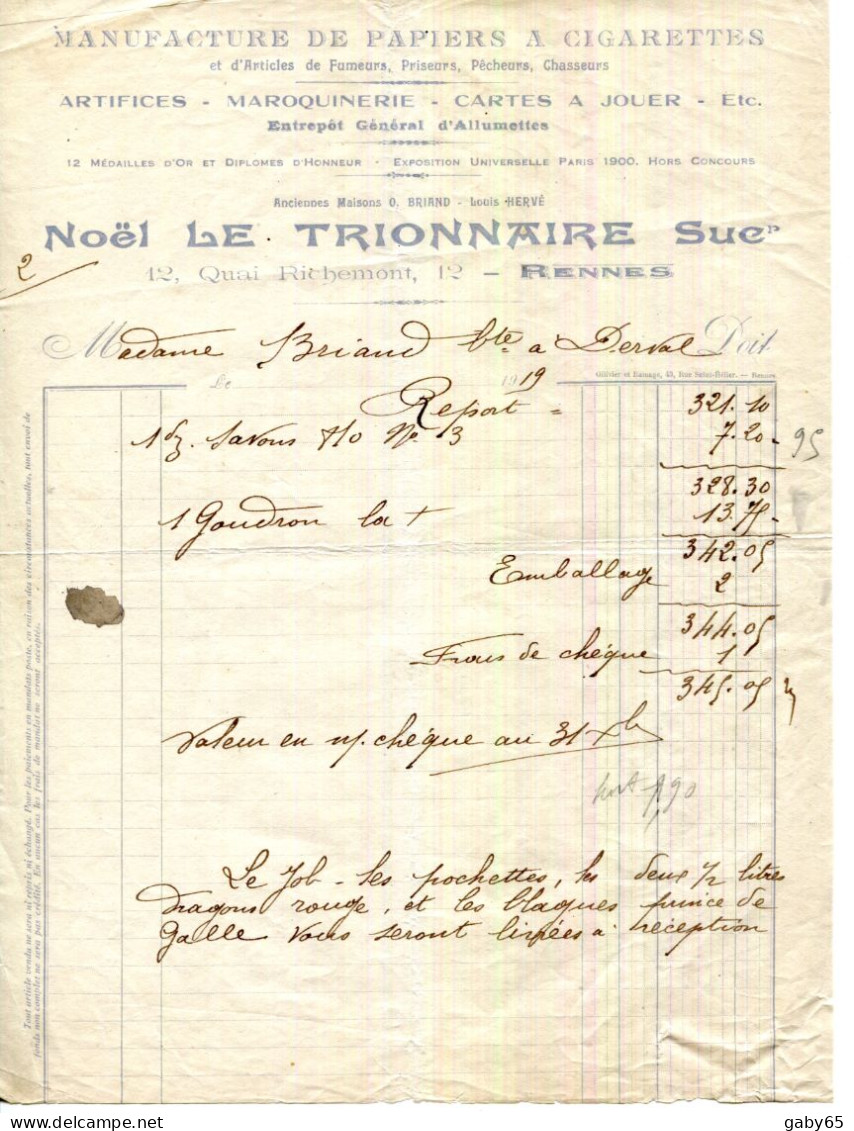 MANUFACTURE DE PAPIERS A CIGARETTES
et d'Articles de Fumeurs, Priseurs, Pêcheurs, Chasseurs
ARTIFICES - MAROQUINERIE - CARTES A JOUER - Etc.
Entrepôt Général d'Allumettes
12 MÉDAILLES D'OR ET DIPLOMES D'HONNEUR - EXPOSITION UNIVERSELLE PARIS 1900. HORS CONCOURS
Anciennes Maisons O. BRIAND - Louis HERVÉ
Noël LE TRIONNAIRE Sucr
2
12, Quai Richemont, 12 - RENNES
Madame Briand bte a Derval Doit
Ollivier et Ramage, 43, Rue Saint-Hélier. — Rennes
Le 1919
Report = 321.10
1 dz. Savons No 3 7.20 95
328.30
1 Goudron la + 13.75
342.05
Emballage 2
344.05
Frais de chèque 1
345.05
Valeur en m/ chéque au 31 Xb
port 1,90
Le Job - les pochettes, les deux 1/2 litres
dragons rouge, et les blagues
Galle vous seront livrées à réception
Tout article vendu ne sera ni repris ni échangé. Pour les paiements en mandats poste, en raison des circonstances actuelles, tout envoi de
fonds non complet ne sera pas crédité. En aucun cas les frais de mandat ne seront acceptés.
delcampe.net
gaby65